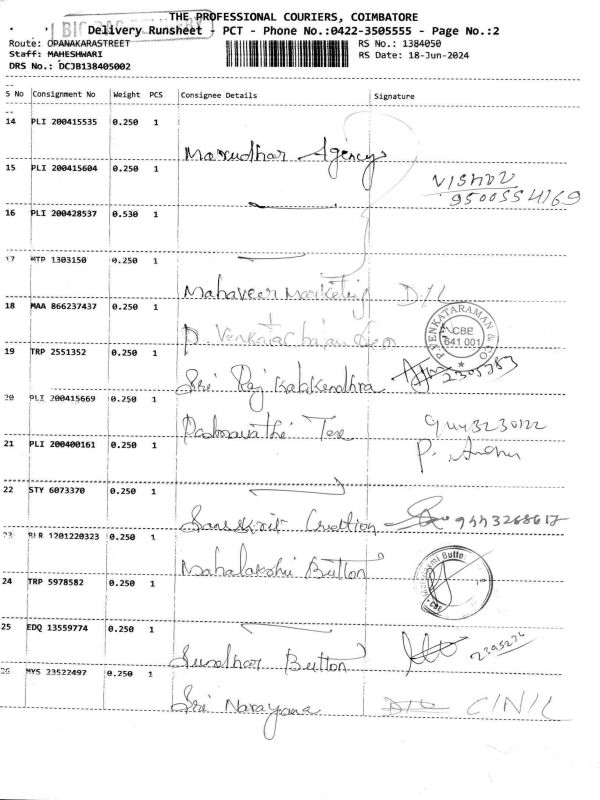 THE PROFESSIONAL COURIERS, COIMBATORE
Delivery Runsheet - PCT - Phone No.:0422-3505555 - Page No.:2
Route: OPANAKARASTREET
RS No.: 1384050
Staff: MAHESHWARI
RS Date: 18-Jun-2024
DRS No.: DCJB138405002
S No Consignment No Weight PCS Consignee Details Signature
14 PLI 200415535 0.250 1
Marudhar Agency
15 PLI 200415604 0.250 1
9500554169
16 PLI 200428537 0.530 1
17 MTP 1303150 0.250 1
Mahaveer Marketing
18 MAA 866237437 0.250 1
P. VENKATARAMAN & CO
CBE
641 001
19 TRP 2551352 0.250 1
Sri Raj Kalakendhra
20 PLI 200415669 0.250 1
Padmavathi Tex
21 PLI 200400161 0.250 1
22 STY 6073370 0.250 1
Creation 9443268617
23 BLR 1201220323 0.250 1
Mahalakshi Button
24 TRP 5978582 0.250 1
25 EDQ 13559774 0.250 1
Button
26 MYS 23522497 0.250 1
Sri Narayana